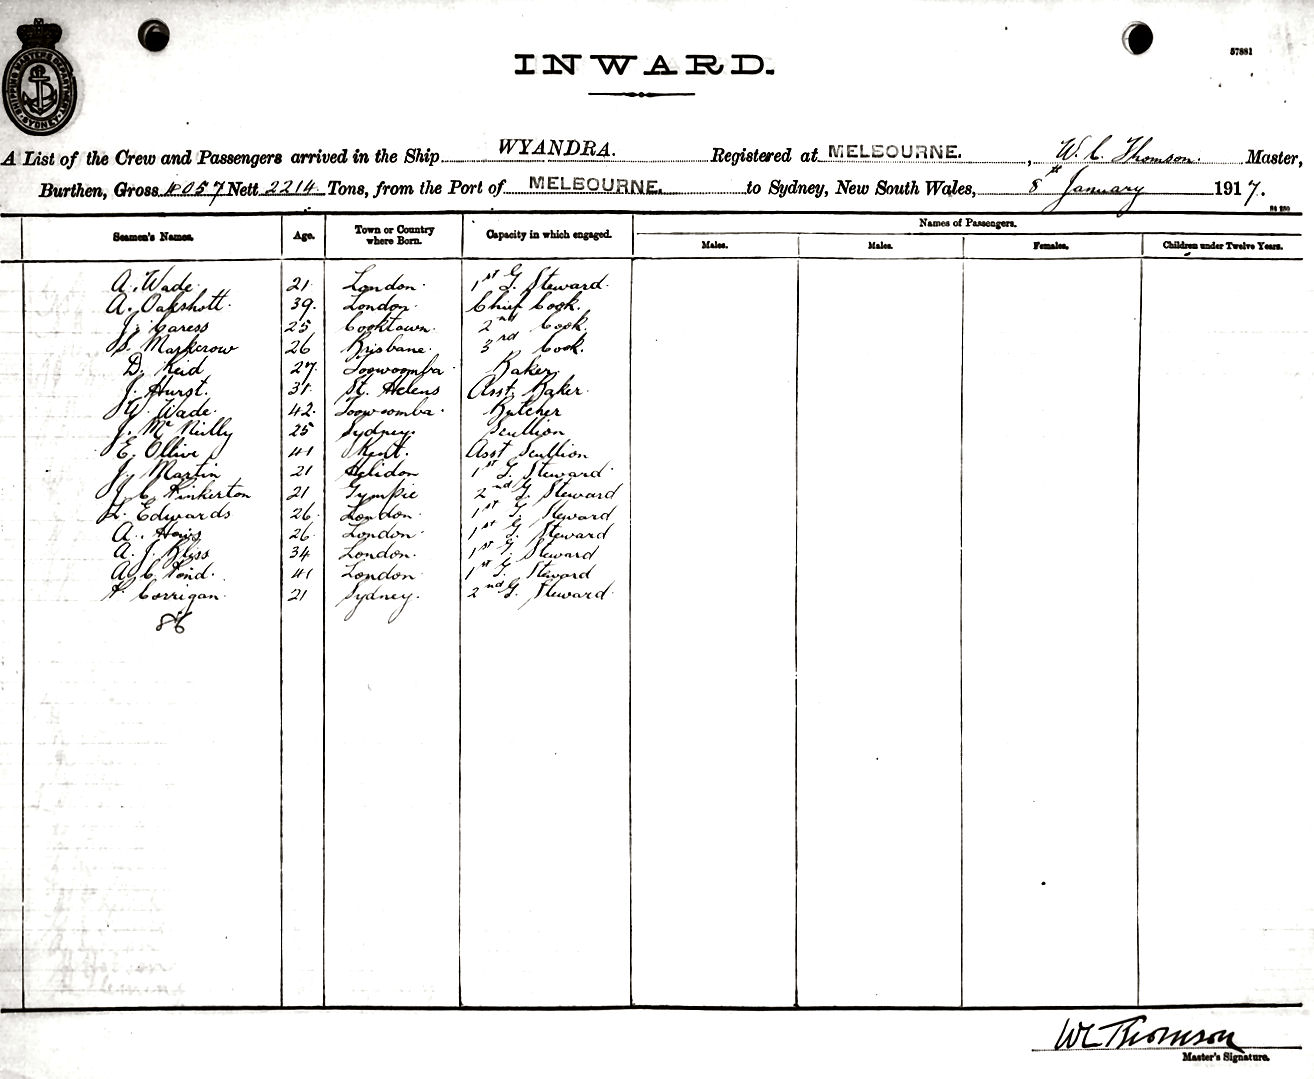 SHIPPING MASTERS DEPARTMENT SYDNEY
INWARD.
57881
A List of the Crew and Passengers arrived in the Ship WYANDRA. Registered at MELBOURNE., W. C. Thomson. Master,
Burthen, Gross 4057 Nett 2214 Tons, from the Port of MELBOURNE. to Sydney, New South Wales, 8th January 1917.
Seamen's Names. Age. Town or Country where Born. Capacity in which engaged. Names of Passengers.
Males. Males. Females. Children under Twelve Years.
A. Wade. 21 London. 1st G. Steward.
A. Oakshott. 39. London. Chief Cook.
J. Caress 25 Cooktown. 2nd Cook.
S. Markcrow 26 Brisbane. 3rd Cook.
D. Reid 27. Toowoomba. Baker.
J. Hurst. 31. St. Helens Asst. Baker.
W. Wade. 42. Toowoomba. Butcher
J. McNeilly 25 Sydney. Scullion
E. Ollive 41 Kent. Asst Scullion
J. Martin 21 Helidon 1st G. Steward
J. C. Pinkerton 21 Gympie 2nd G. Steward
L. Edwards 26. London. 1st G. Steward
A. 26. London. 1st G. Steward
A. J. Bliss 34 London. 1st G. Steward
A. C. Pond. 41 London 1st G. Steward
P. Corrigan. 21 Sydney. 2nd G. Steward
86
W C Thomson
Master's Signature.